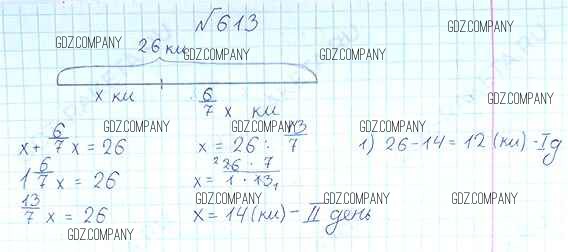 №613
26 км
x км 6/7 x км
x + 6/7 x = 26
1 6/7 x = 26
13/7 x = 26
x = 26 : 13/7
x = 26 · 7 / 1 · 13
x = 14 (км) - II день
1) 26 - 14 = 12 (км) - I д
GDZ.COMPANY
GDZ.COMPANY
GDZ.COMPANY
GDZ.COMPANY
GDZ.COMPANY
GDZ.COMPANY
GDZ.COMPANY
GDZ.COMPANY
GDZ.COMPANY
GDZ.COMPANY
GDZ.COMPANY
GDZ.COMPANY
GDZ.COMPANY